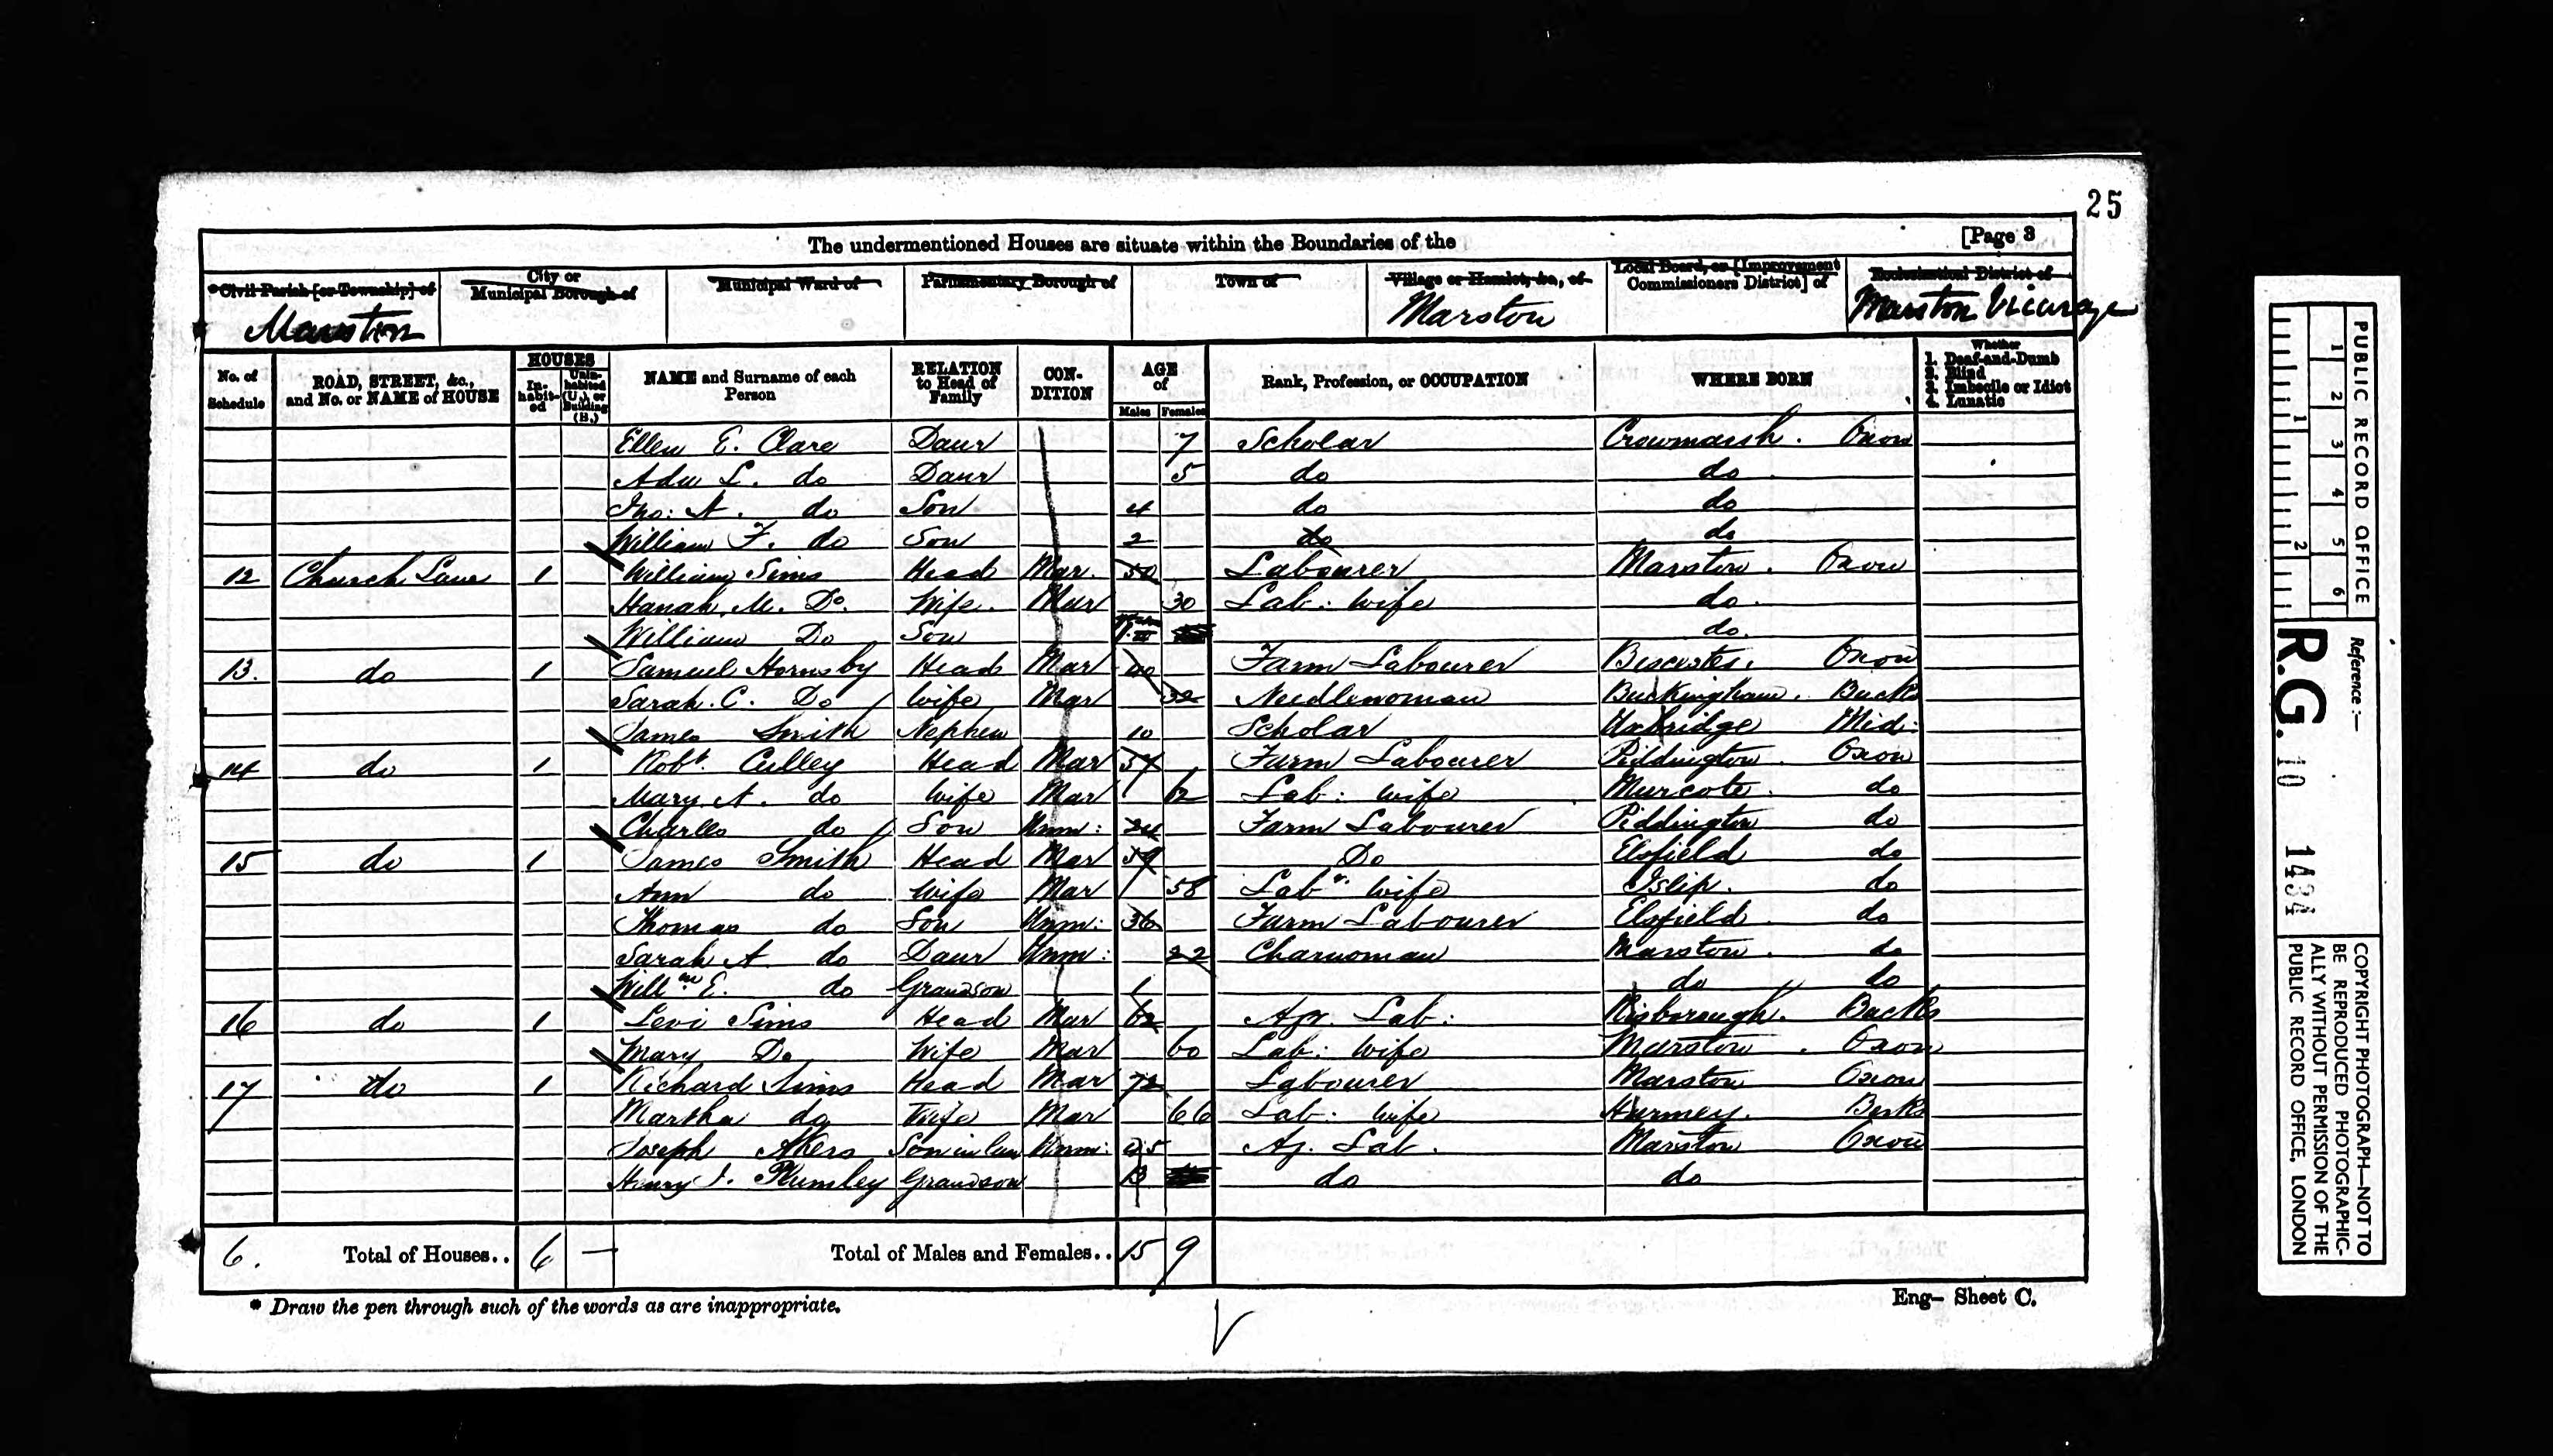 25
The undermentioned Houses are situate within the Boundaries of the [Page 3
*Civil Parish [or Township] of City or Municipal Borough of Municipal Ward of Parliamentary Borough of Town of Village or Hamlet, &c., of Local Board, or [Improvement Commissioners District] of Ecclesiastical District of
Marston Marston Marston Vicarage
No. of Schedule ROAD, STREET, &c., and No. or NAME of HOUSE HOUSES In-habit-ed Unin-habited (U.) or Building (B.) NAME and Surname of each Person RELATION to Head of Family CON-DITION AGE of Males Females Rank, Profession, or OCCUPATION WHERE BORN Whether 1. Deaf-and-Dumb 2. Blind 3. Imbecile or Idiot 4. Lunatic
Ellen E. Clare Daur 7 Scholar Crowmarsh. Oxon
Ada L. do Daur 5 do do
Tho: A. do Son 4 do do
William F. do Son 2 do do
12 Church Lane 1 William Sims Head Mar. 30 Labourer Marston. Oxon
Hanah M. Do. Wife. Mar 30 Lab: wife do.
William Do Son do.
13. do 1 Samuel Hornsby Head Mar 40 Farm Labourer Bicester. Oxon
Sarah. C. Do Wife Mar 32 Needlewoman Buckingham. Bucks
James Smith Nephew 10 Scholar Uxbridge Mid:
14 do 1 Robt. Culley Head Mar 57 Farm Labourer Piddington. Oxon
Mary A. do Wife Mar 62 Lab: wife Murcote. do
Charles do Son Unm: 24 Farm Labourer Piddington do
15 do 1 James Smith Head Mar 59 Do Elsfield do
Ann do Wife Mar 58 Labr. wife Islip. do
Thomas do Son Unm: 36 Farm Labourer Elsfield do
Sarah A do Daur Unm: 22 Charwoman Marston. do
Willm E. do Grandson 1 do do
16 do 1 Levi Sims Head Mar 62 Agr. Lab: Risborough. Bucks
Mary Do Wife Mar 60 Lab: wife Marston. Oxon
17 do 1 Richard Sims Head Mar 72 Labourer Marston Oxon
Martha do Wife Mar 66 Lab: wife Berks
Joseph Akers Son in law Unm: 25 Ag. Lab. Marston Oxon
Henry J. Plumley Grandson 13 do do
6. Total of Houses.. 6 — Total of Males and Females.. 15 9
* Draw the pen through such of the words as are inappropriate.
Eng— Sheet C.
PUBLIC RECORD OFFICE
1 2 3 4 5 6
1 2
Reference :—
R.G. 10 1434
COPYRIGHT PHOTOGRAPH—NOT TO
BE REPRODUCED PHOTOGRAPHIC-
ALLY WITHOUT PERMISSION OF THE
PUBLIC RECORD OFFICE, LONDON